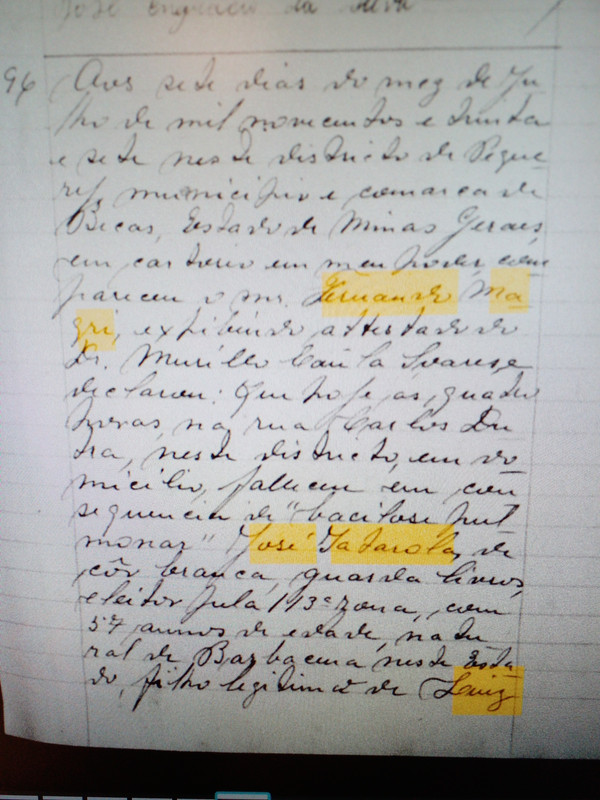 José Engracio da Silva
96 Aos sete dias do mez de Ju
lho de mil novecentos e trinta
e sete neste districto de Peque
ry, municipio e comarca de
Bicas, Estado de Minas Geraes,
em cartorio em meu poder, com
pareceu o snr. Fernando Ma
gri, exhibindo attestado do
Dr. Murillo Soares, e
declarou: Que hoje, ás, quatro
horas, na rua Carlos Du
tra, neste districto, em do
micilio, falleceu em con
sequencia de "bacilose pul
monar" José Tatarola, de
côr branca, guarda livros,
eleitor pela 113ª zona, com
57 annos de edade, natu
ral de Barbacena neste Esta
do, filho legitimo de Luiz